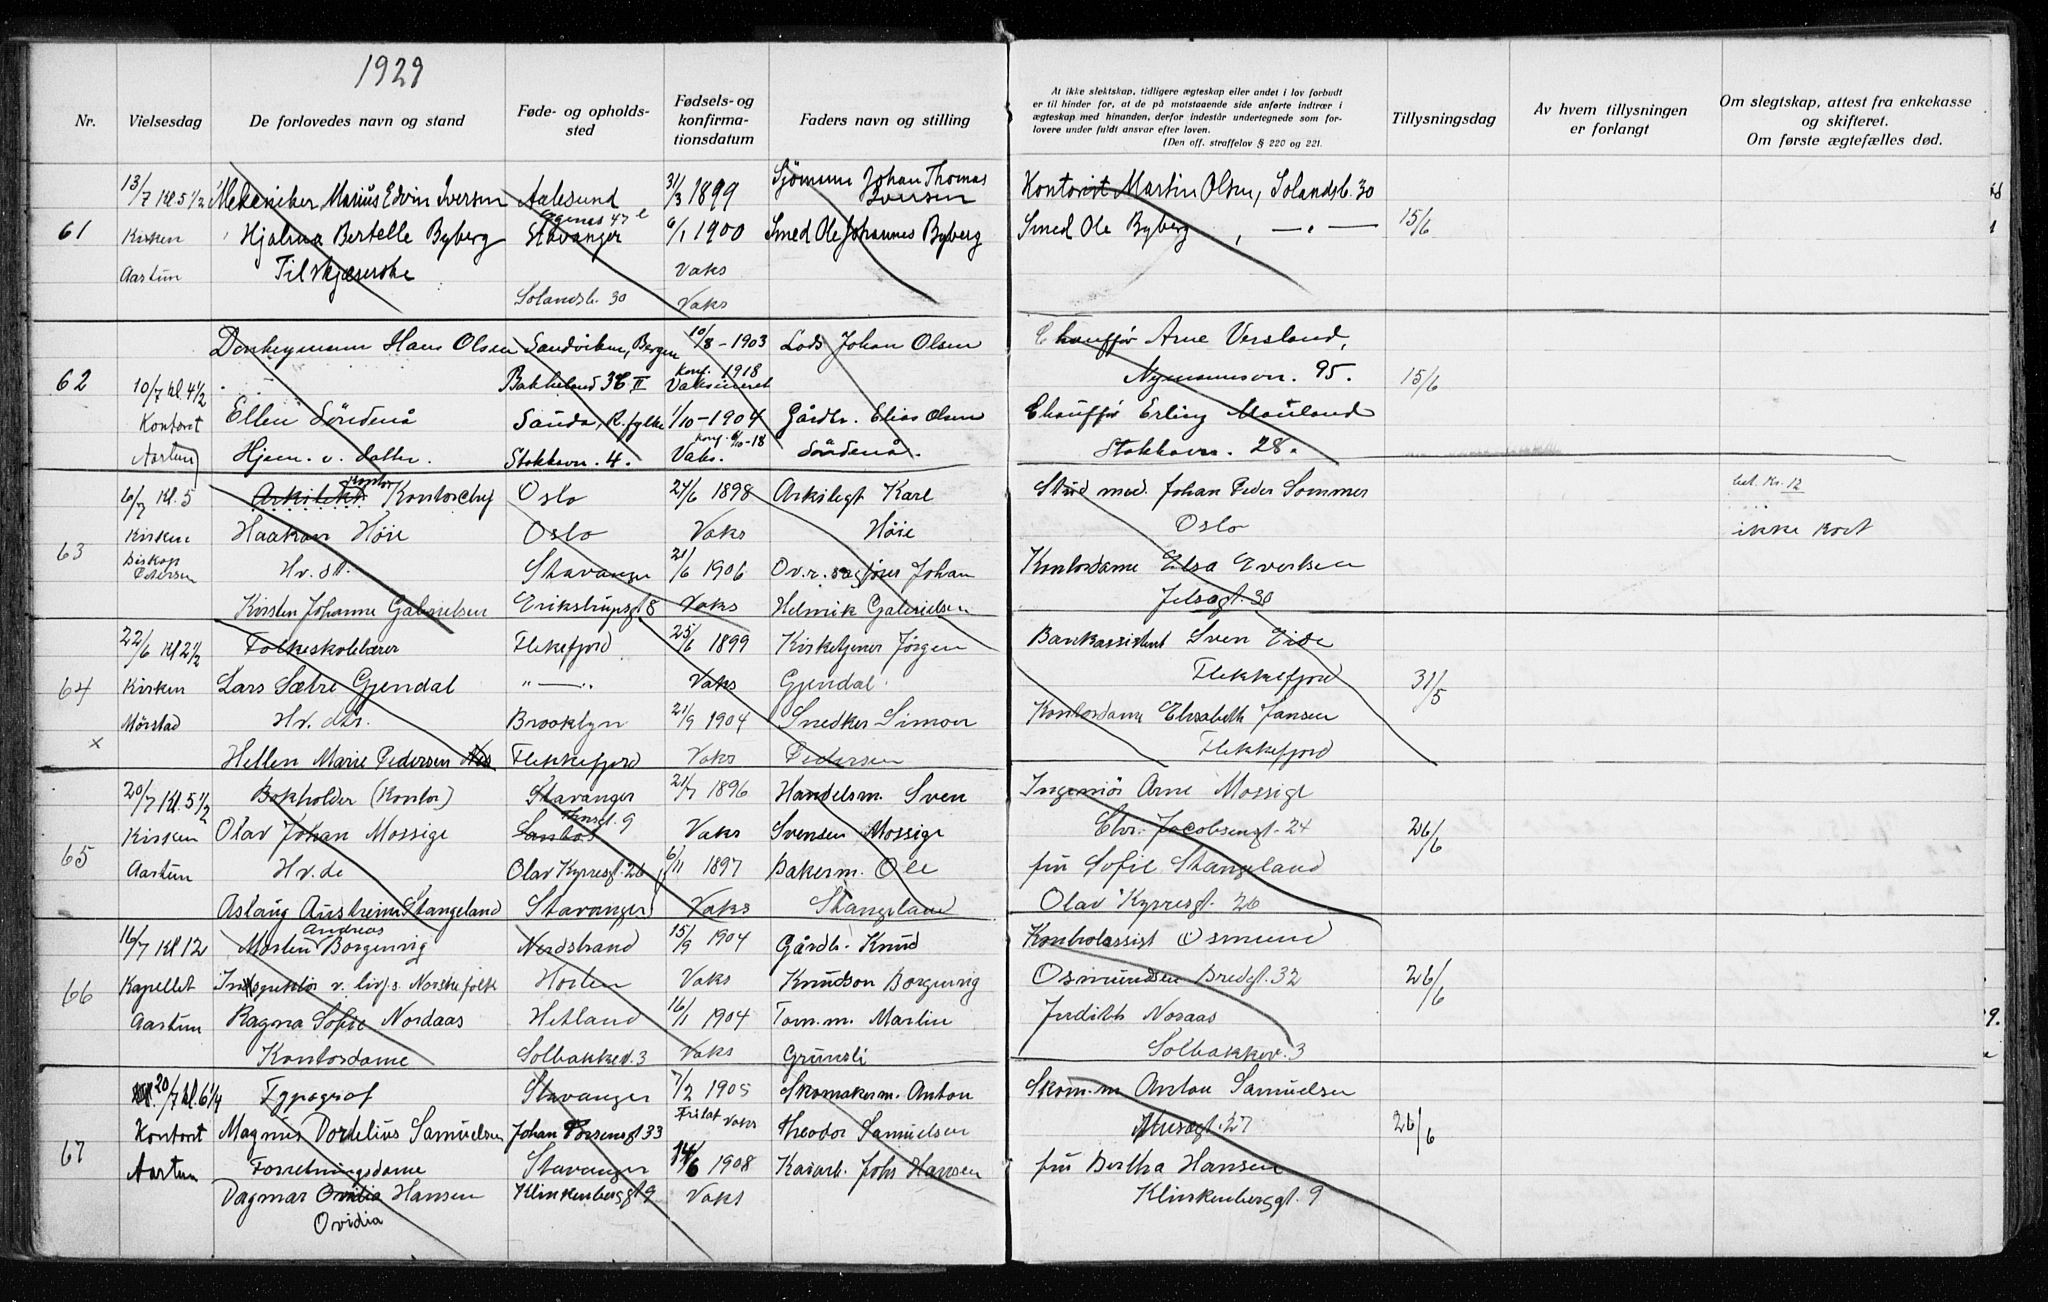 1929
Nr.
Vielsesdag
De forlovedes navn og stand
Føde- og opholds-
sted
Fødsels- og
konfirma-
tionsdatum
Faders navn og stilling
At ikke slektskap, tidligere ægteskap eller andet i lov forbudt
er til hinder for, at de på motstaaende side anførte indtrær i
ægteskap med hinanden, derfor indestår undertegnede som for-
lovere under fuldt ansvar efter loven.
(Den off. straffelov § 220 og 221.
Tillysningsdag
Av hvem tillysningen
er forlangt
Om slegtskap, attest fra enkekasse
og skifteret.
Om første ægtefælles død.
13/7 Kl 5 1/2 Mekeniker Marius Edvin Iversen Aalesund 31/3 1899 Sjømann Johan Thomas Iversen Kontorist Martin Olsen, Solandsb. 30
Agenes 47
61 Kirken Hjalma Bertelle Byberg Stavanger 6/1 1900 Smed Ole Johannes Byberg Smed Ole Byberg , — " — 15/6
Aastun Tilskjærerske Vaks
Solandsb. 30 Vaks
Donkeymann Hans Olsen Sandviken, Bergen 10/8 - 1903 Lods Johan Olsen Chauffør Arne Versland,
62 10/7 kl. 4 1/2 Bakkeland 36 II konf. 1918 Vaksineret Nymannsvn. 95. 15/6
Kontoret Ellen Søndenå Sauda, R. fylke 1/10 - 1904 Gårdbr. Elias Olsen Chauffør Erling Mauland
Aastun Hjem. v. datter. Stokkavn. 4. konf. 6/10-18 Vaks. Søndenå. Stokkavn. 28.
6/7 Kl. 5 Arkitekt Kontor Kontorchef Oslo 27/6 1898 Arkitegt Karl Stud med. Johan Peder Sommer bet. Kr. 12
Kirken Haakon Høie Oslo Vaks Høie Oslo ikke kort
63 Biskop Petersen Hv. dt. Stavanger 21/6 1906 Ov.r. sagfører Johan Kontordame Elsa Evertsen
Kirsten Johanne Gabrielsen Erikstrupsgt 8 Vaks Helmik Gabrielsen Jelsagt. 30
22/6 Kl 2 1/2 Folkeskolelærer Flekkefjord 25/6 1899 Kirketjener Jørgen Bankassistent Sven Eide
64 Kirken Lars Sætre Gjendal " — " Vaks Gjendal Flekkefjord 31/5
Mørstad Hv. dtr. Brooklyn 21/9 1904 Snedker Simon Kontordame Elisabeth Jansen
x Hellen Marie Pedersen Flekkefjord Vaks Pedersen Flekkefjord
20/7 Kl. 5 1/2 Bokholder (Kontor) Stavanger 21/7 1896 Handelsm. Sven Ingeniør Arne Mossige
Kirken Olav Johan Mossige 9 Vaks Svensen Mossige Chr. Jacobsensgt. 24 26/6
65 Aastun Hv. de Olav Kyrresgt. 26 6/11 1897 Bakerm. Ole fru Sofie Stangeland
Aslaug Austreim Stangeland Stavanger Vaks Stangeland Olav Kyrresgt. 26
16/7 Kl 12 Morten Andreas Borgenvig Nerdstrand 15/9 1904 Gårdbr. Knud Kontorassist Osmund
66 Kapellet Inspektør v. livf.s. Norske folk Horten Vaks Knudson Borgenvig Osmundsen Bredgt. 32 26/6
Aastun Ragna Sofie Nordaas Hetland 16/11 1904 Tom.m. Martin Judith Nordaas
Kontordame Solbakkev. 3 Vaks Grunsli Solbakkev. 3
20/7 kl. 6 1/4 Typograf Stavanger 7/2 1905 Skomakerm. Anton Skom.m Anton Samuelsen
Kontoret Magnus Dordelius Samuelsen Johan Torsensgt 33 Fritat Vaks Theodor Samuelsen Musegt. 27 26/6
67 Aastun Forretningsdame Stavanger 14/6 1908 Kaiarb. Johs Hansen fru Bertha Hansen
Dagmar Ovidia Hansen Klinkenberggt 9 Vaks Klinkenberggt. 9
Ovidia